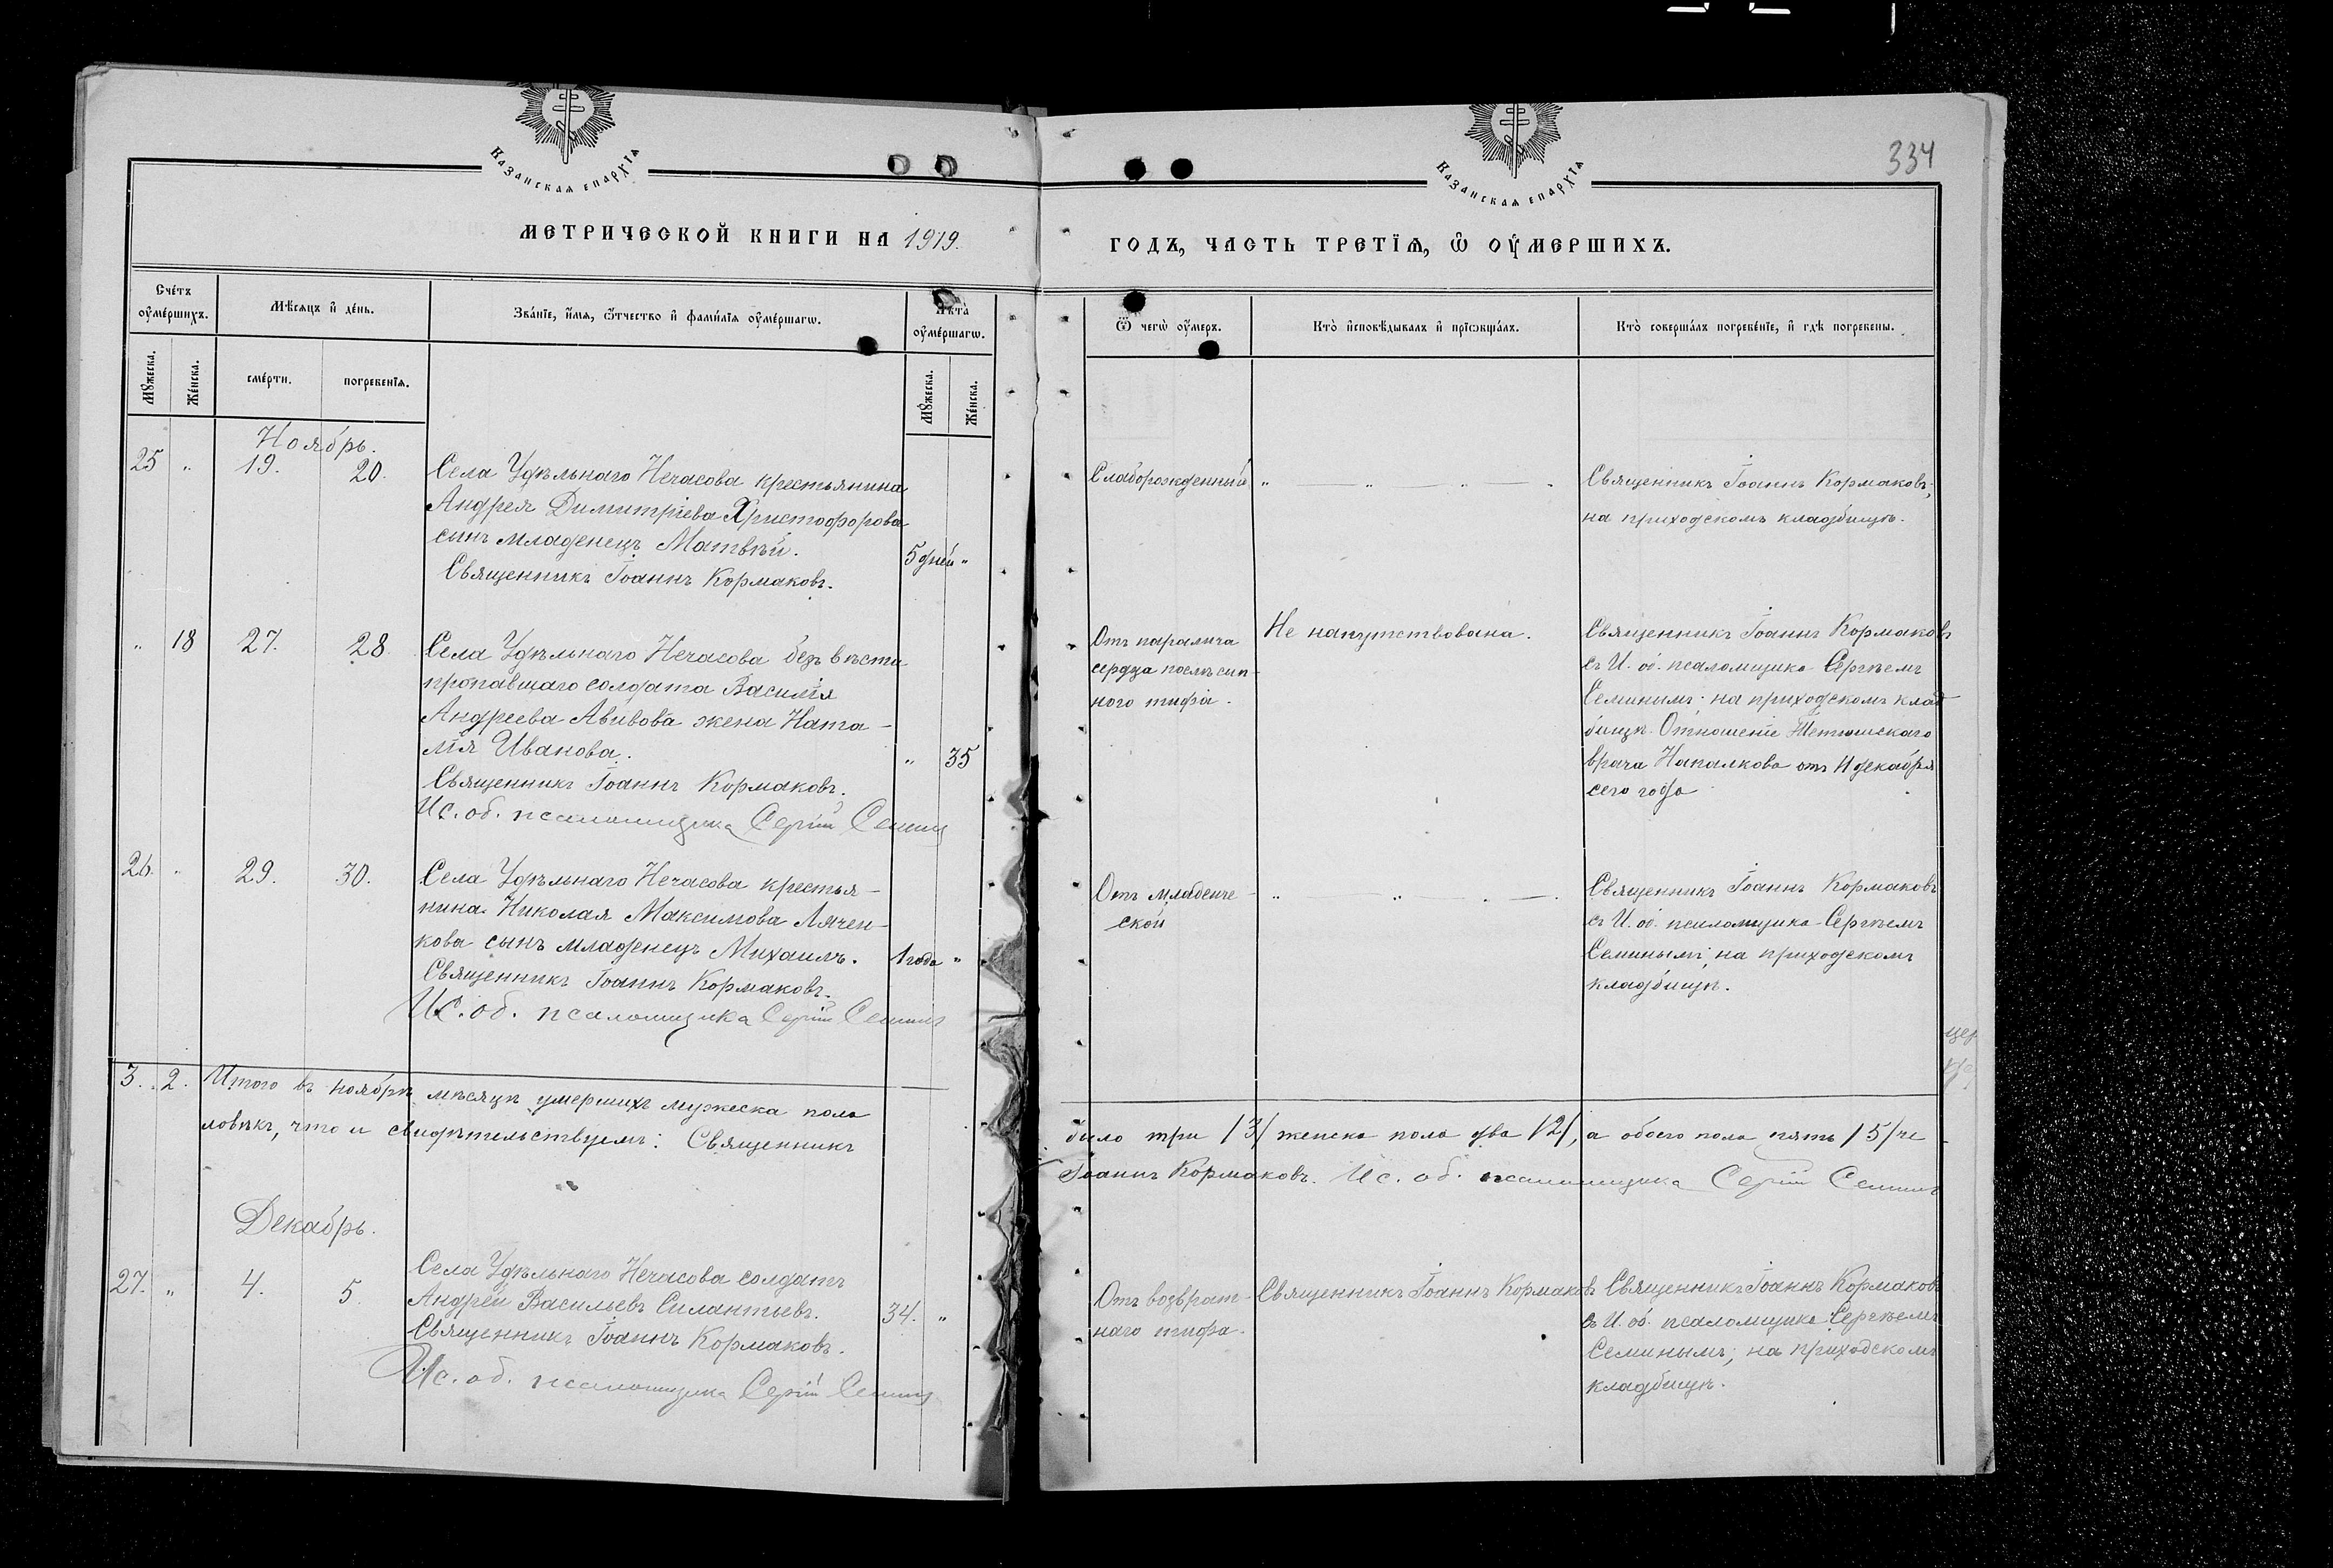 Казанская епархїя
Казанская епархїя
334
МЕТРИЧЕСКОЙ КНИГИ НА 1919.
ГОДЪ, ЧАСТЬ ТРЕТЇЯ, Ѡ ОУМЕРШИХЪ.
Счетъ оумершихъ.
Мѣсяцъ и день.
Званїе, имя, ѿчество и фамилїя оумершагѡ.
Лѣта оумершагѡ.
Ѿ чегѡ оумеръ.
Кто исповѣдывалъ и прїѡбщалъ.
Кто совершалъ погребенїе, и гдѣ погребены.
Мꙋжеска.
Женска.
смерти.
погребенїя.
Мꙋжеска.
Женска.
Ноябрь.
25 " 19. 20.
Села Удѣльнаго Нечасова крестьянина
Андрея Димитріева Христофорова
сынъ младенецъ Матвѣй.
5 дней "
Священникъ Іоаннъ Кормаковъ.
Слаборожденный
" " " "
Священникъ Іоаннъ Кормаковъ;
на приходскомъ кладбищѣ.
" 18 27. 28.
Села Удѣльнаго Нечасова безъ вѣсти
пропавшаго солдата Василія
Андреева Авивова жена Ната-
лія Иванова.
" 35
Священникъ Іоаннъ Кормаковъ.
Ис. об. псаломщика Сергій Семинъ
Отъ паралича
сердца послѣ сып-
ного тифа.
Не напутствована.
Священникъ Іоаннъ Кормаковъ
съ И. об. псаломщика Сергѣемъ
Семинымъ; на приходскомъ клад
бищѣ. Отношеніе Тетюшскаго
врача Напалкова отъ 11 декабря
сего года
26. " 29. 30.
Села Удѣльнаго Нечасова крестья-
нина Николая Максимова Лячен-
кова сынъ младенецъ Михаилъ.
1 года "
Священникъ Іоаннъ Кормаковъ.
Ис. об. псаломщика Сергій Семинъ
Отъ младенче-
ской
" " " "
Священникъ Іоаннъ Кормаковъ
съ И. об. псаломщика Сергѣемъ
Семинымъ; на приходскомъ
кладбищѣ.
3. 2. Итого въ ноябрѣ мѣсяцѣ умершихъ мужеска пола
было три /3/ женска пола два /2/, а обоего пола пять /5/ че-
ловѣкъ, что и свидѣтельствуемъ: Священникъ
Іоаннъ Кормаковъ. Ис. об. псаломщика Сергій Семинъ
Декабрь.
27. " 4. 5.
Села Удѣльнаго Нечасова солдатъ
Андрей Васильевъ Силантьевъ.
34. "
Священникъ Іоаннъ Кормаковъ.
Ис. об. псаломщика Сергій Семинъ
Отъ возврат-
наго тифа.
Священникъ Іоаннъ Кормаковъ
Священникъ Іоаннъ Кормаковъ
съ И. об. псаломщика Сергѣемъ
Семинымъ; на приходскомъ
кладбищѣ.